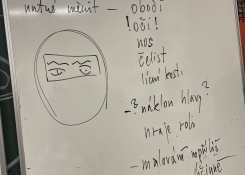 nutné měnit – obočí
! oči !
nos
čelist
lícní kosti
– ? náklon hlavy ?
hraje roli
– malování